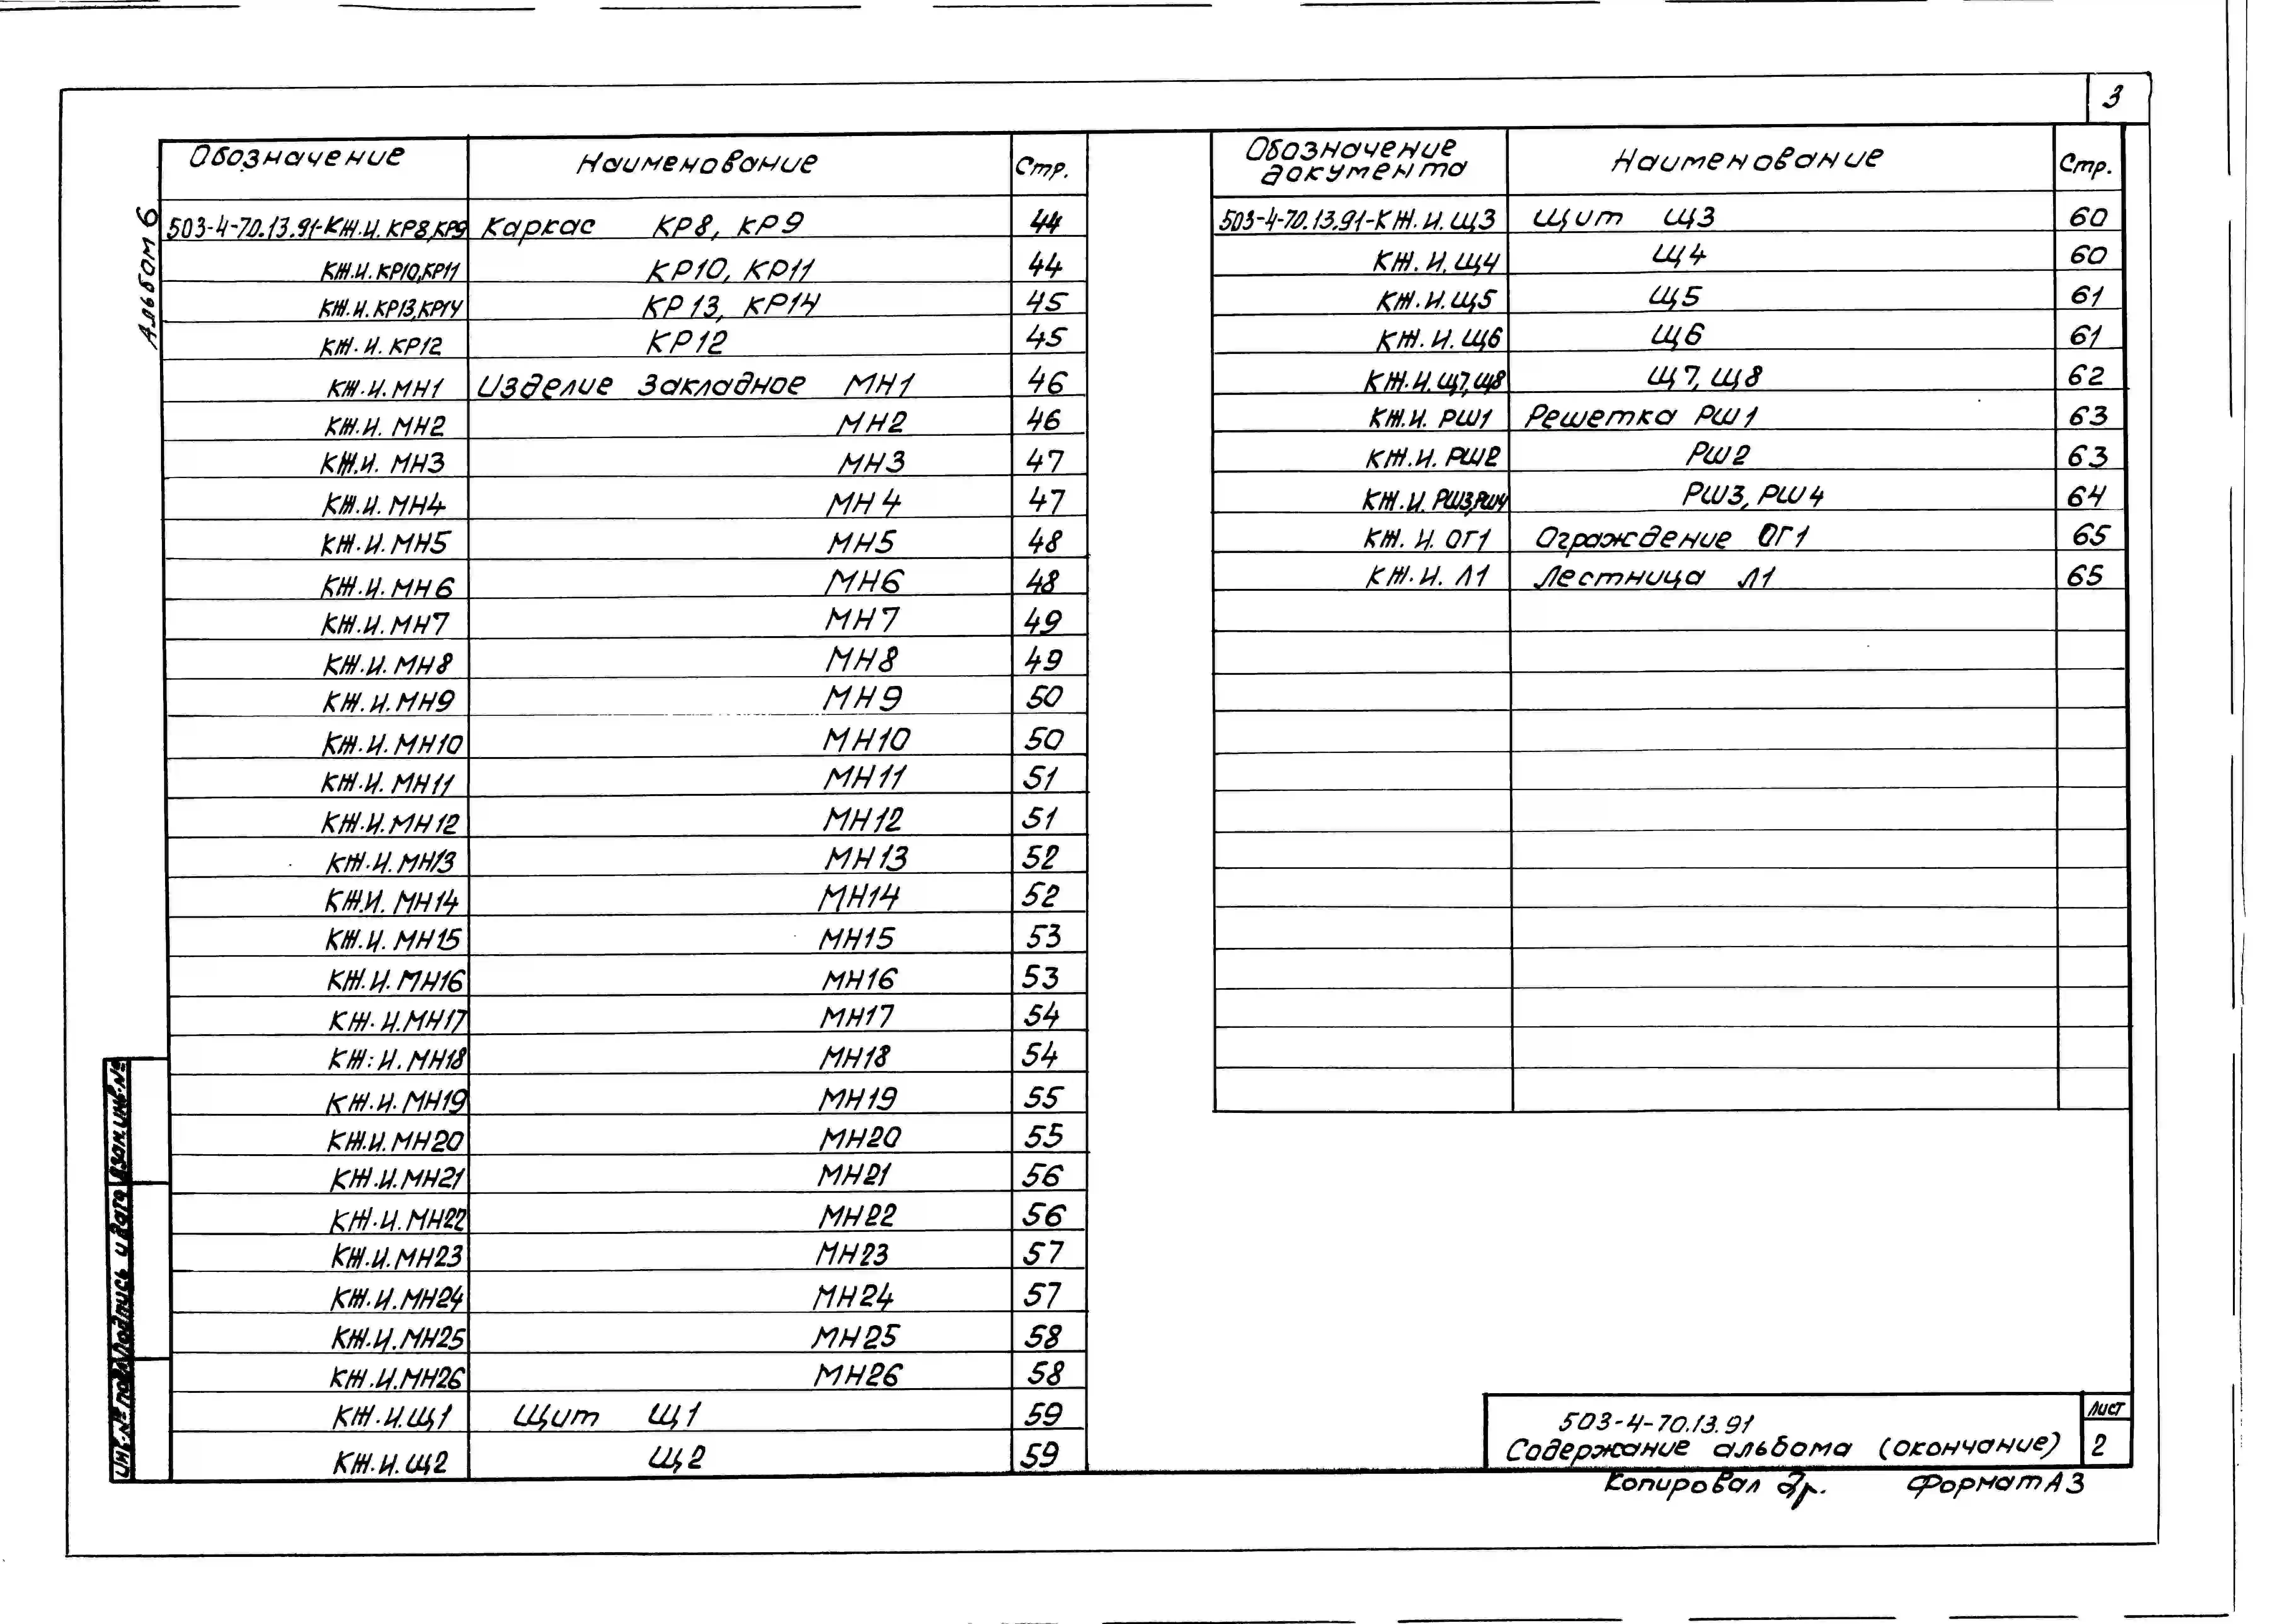 3
Альбом 6
Обозначение Наименование Стр.
503-4-70.13.91-КЖ.И. КР8,КР9 Каркас КР8, КР9 44
КЖ.И. КР10,КР11 КР10, КР11 44
КЖ.И. КР13,КР14 КР13, КР14 45
КЖ.И. КР12 КР12 45
КЖ.И. МН1 Изделие закладное МН1 46
КЖ.И. МН2 МН2 46
КЖ.И. МН3 МН3 47
КЖ.И. МН4 МН4 47
КЖ.И. МН5 МН5 48
КЖ.И. МН6 МН6 48
КЖ.И. МН7 МН7 49
КЖ.И. МН8 МН8 49
КЖ.И. МН9 МН9 50
КЖ.И. МН10 МН10 50
КЖ.И. МН11 МН11 51
КЖ.И. МН12 МН12 51
КЖ.И. МН13 МН13 52
КЖ.И. МН14 МН14 52
КЖ.И. МН15 МН15 53
КЖ.И. МН16 МН16 53
КЖ.И. МН17 МН17 54
КЖ.И. МН18 МН18 54
КЖ.И. МН19 МН19 55
КЖ.И. МН20 МН20 55
КЖ.И. МН21 МН21 56
КЖ.И. МН22 МН22 56
КЖ.И. МН23 МН23 57
КЖ.И. МН24 МН24 57
КЖ.И. МН25 МН25 58
КЖ.И. МН26 МН26 58
КЖ.И. Щ1 Щит Щ1 59
КЖ.И. Щ2 Щ2 59
Обозначение документа Наименование Стр.
503-4-70.13.91-КЖ.И. Щ3 Щит Щ3 60
КЖ.И. Щ4 Щ4 60
КЖ.И. Щ5 Щ5 61
КЖ.И. Щ6 Щ6 61
КЖ.И. Щ7,Щ8 Щ7, Щ8 62
КЖ.И. РШ1 Решетка РШ1 63
КЖ.И. РШ2 РШ2 63
КЖ.И. РШ3,РШ4 РШ3, РШ4 64
КЖ.И. ОГ1 Ограждение ОГ1 65
КЖ.И. Л1 Лестница Л1 65
Инв.№ подл. Подпись и дата Взам.инв.№
503-4-70.13.91 Лист
Содержание альбома (окончание) 2
Копировал Формат А3